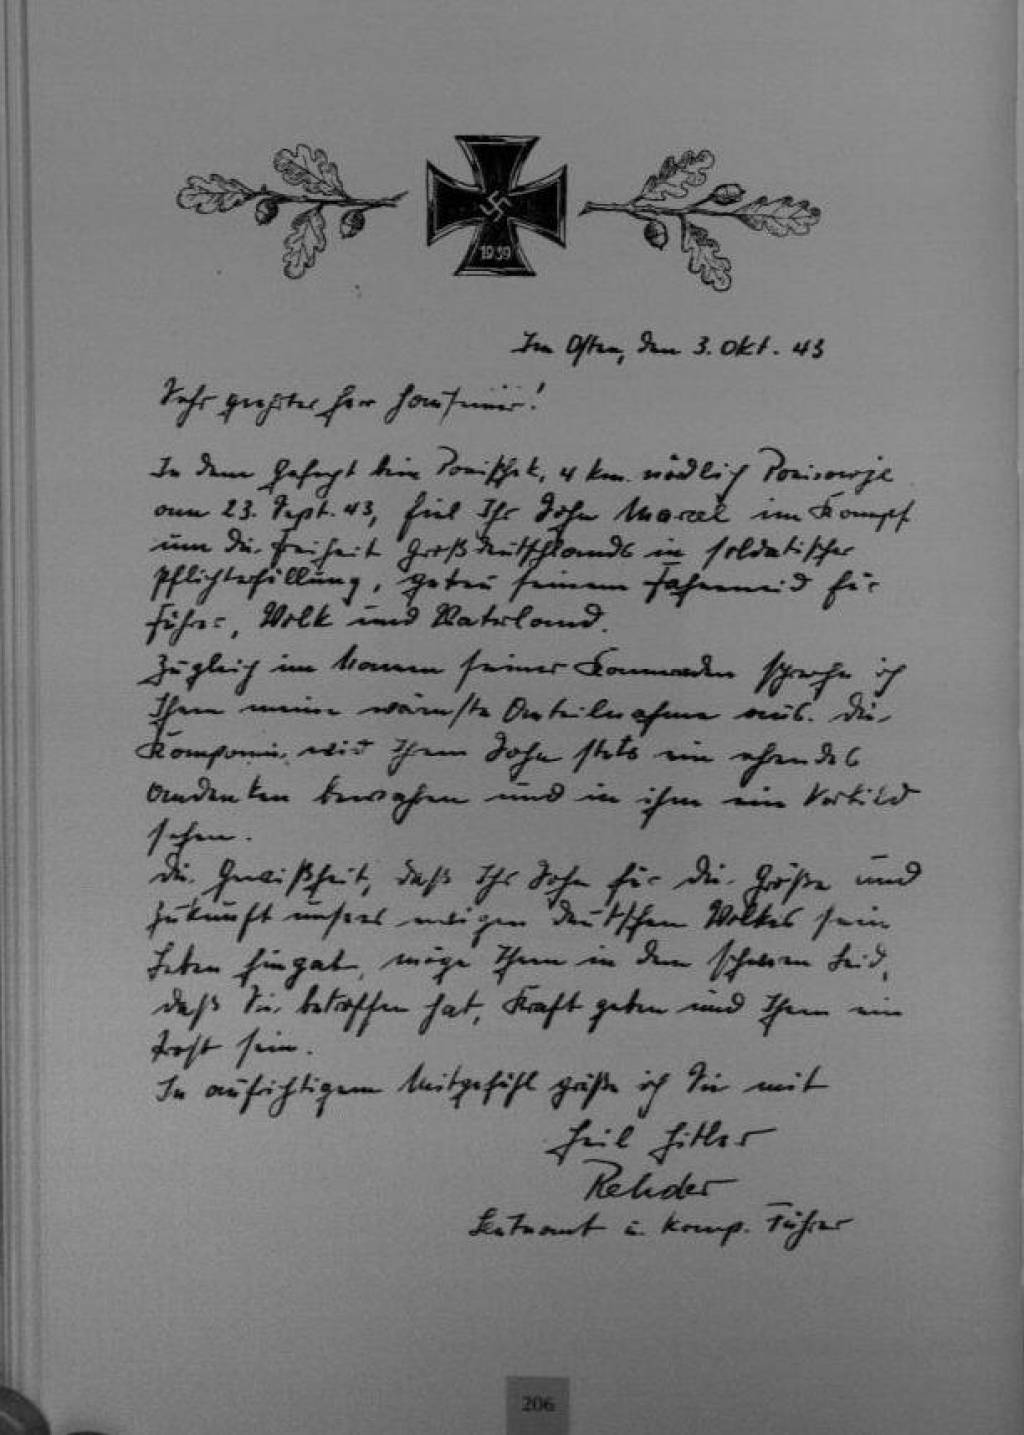 1939
Im Osten, den 3. Okt. 43
Sehr geehrter Herr
In dem Gefecht beim 4 km. nördlich
am 23. Sept. 43, fiel Ihr Sohn Marcel im Kampf
um die Freiheit Großdeutschlands in soldatischer
Pflichterfüllung, getreu seinem Fahneneid für
Führer, Volk und Vaterland.
Zugleich im Namen seiner Kameraden spreche ich
Ihnen meine wärmste Anteilnahme aus. Die
Kompanie wird Ihrem Sohn stets ein ehrendes
Andenken bewahren und in ihm ein Vorbild
sehen.
Die Gewißheit, daß Ihr Sohn für die Größe und
Zukunft unseres ewigen deutschen Volkes sein
Leben hingab, möge Ihnen in dem schweren Leid,
daß Sie betroffen hat, Kraft geben und Ihnen ein
Trost sein.
In aufrichtigem Mitgefühl grüße ich Sie mit
Heil Hitler
Rehder
Leutnant u. Komp. Führer
206